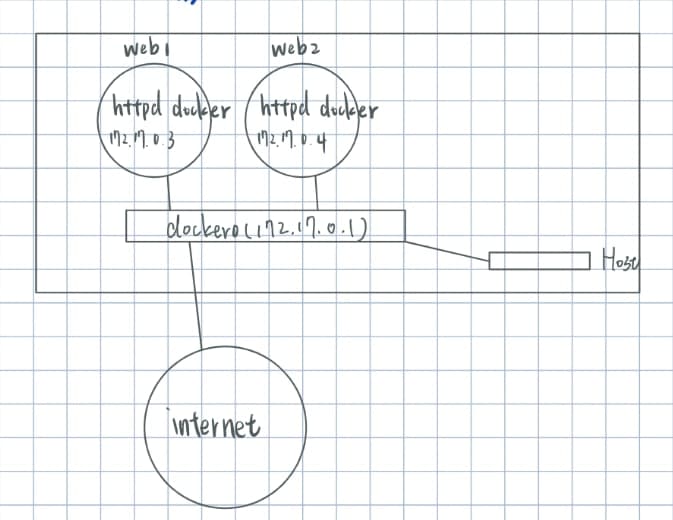 web1
web2
httpd docker
172.17.0.3
httpd docker
172.17.0.4
docker0 (172.17.0.1)
Host
internet